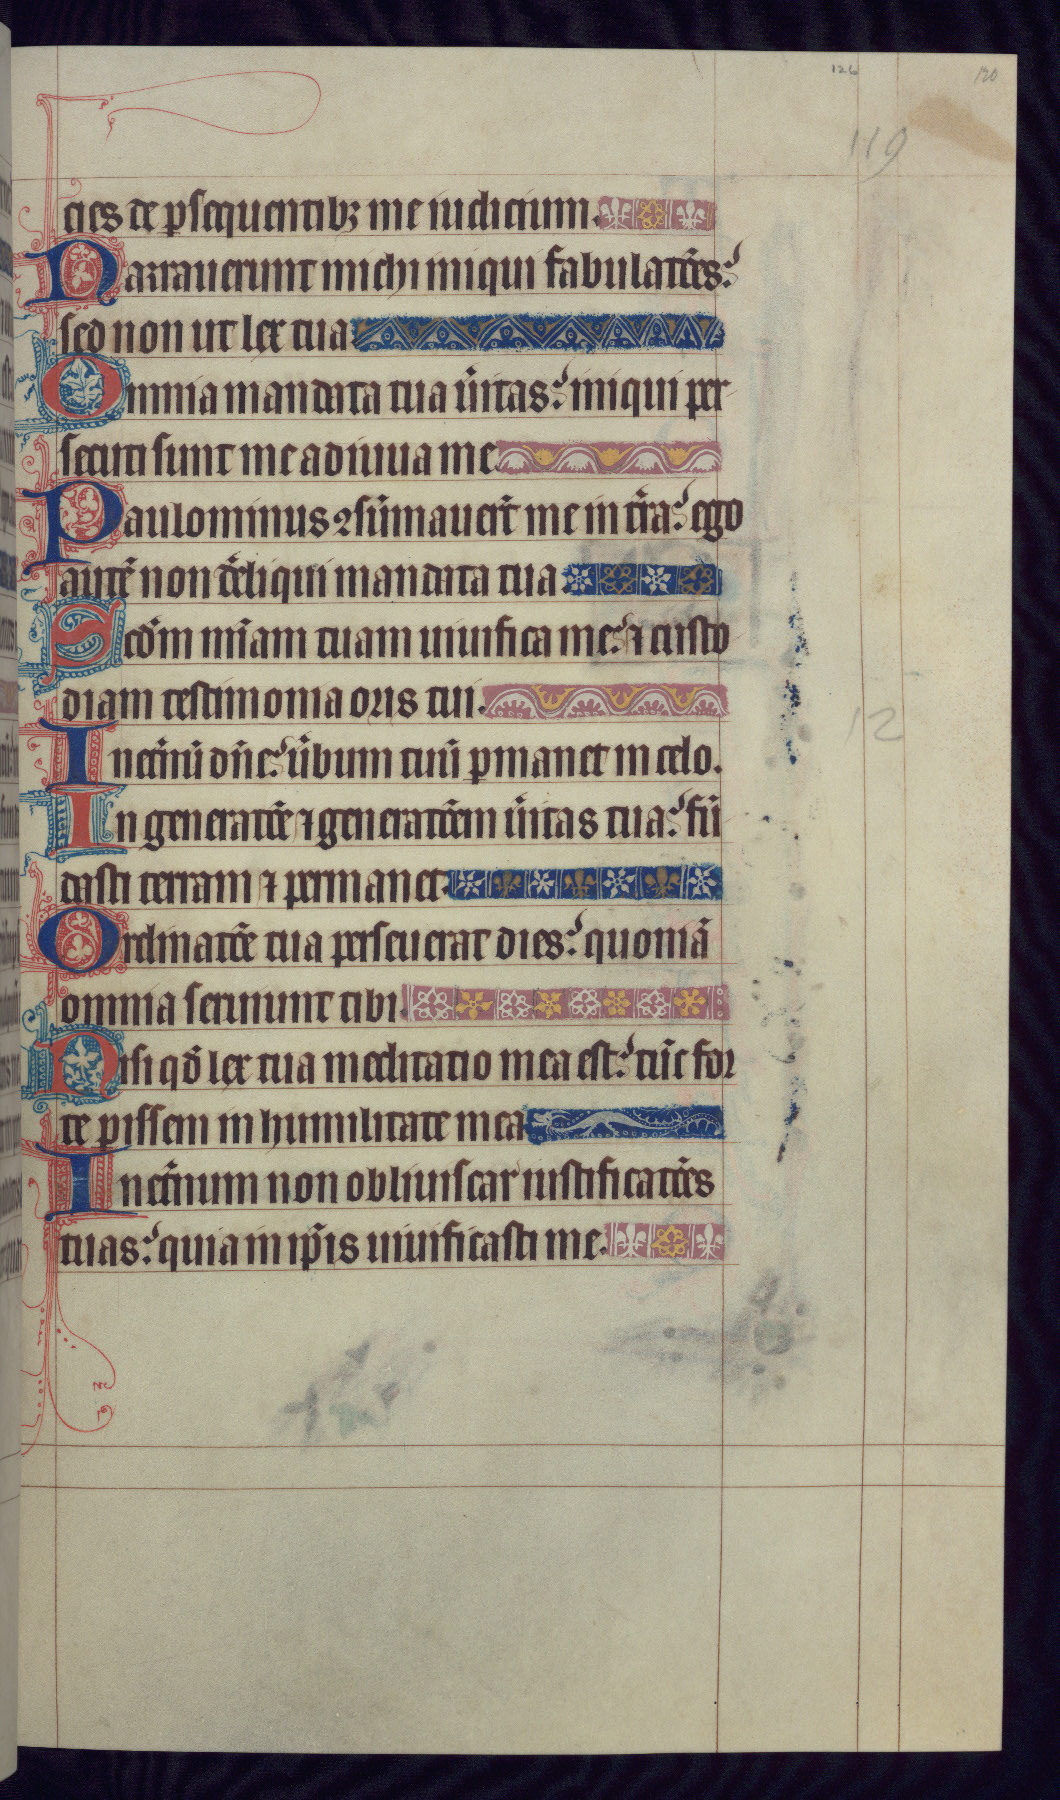 126
120
119
cies de ꝑsequentibꝫ me iudicium.
Narrauerunt michi iniqui fabulatōēs:
sed non ut lex tua
Omnia mandata tua ūitas: iniqui per
secuti sunt me adiuua me
Paulominus ꝯsūmauerūt me in t̄ra: ego
autē non d̄eliqui mandata tua
Scd̄m mīam tuam uiuifica me: ⁊ custo
diam testimonia oris tui.
In et̄nū dn̄e: ūbum tuū ꝑmanet in celo.
In generatōē ⁊ generatōēm ūitas tua: fū
dasti terram ⁊ permanet.
Ordinatōē tua perseuerat dies: quoniā
omnia seruiunt tibi.
Nisi qd̄ lex tua meditatio mea est: tūc for
te ꝑissem in humilitate mea
In et̄num non obliuiscar iustificatōēs
tuas: quia in ip̄is uiuificasti me.
12